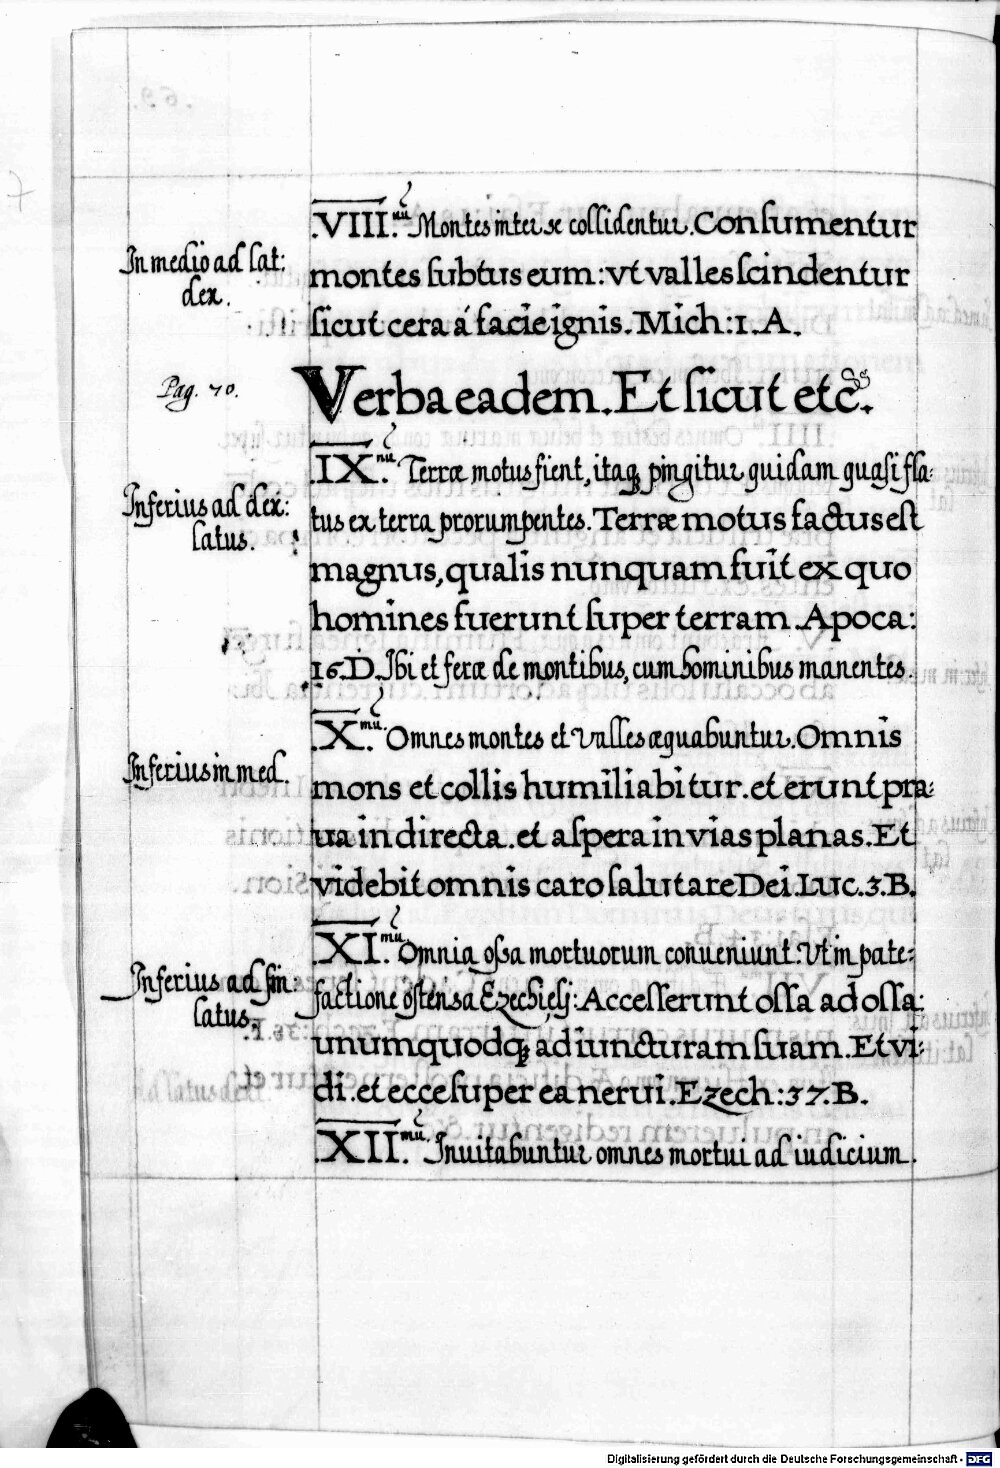 .VIII.um Montes inter se collidentur. Consumentur
In medio ad lat:
dex.
montes subtus eum: vt valles scindentur
sicut cera á facie ignis. Mich: 1. A.
Pag. 70.
Verba eadem. Et sicut etc.
.IX.um Terræ motus fient, itaq₃ pingitur quidam quasi fla:
Inferius ad dex:
latus.
tus ex terra prorumpentes. Terræ motus factus est
magnus, qualis nunquam fuit ex quo
homines fuerunt super terram. Apoca:
16. D. Ibi et feræ de montibus, cum hominibus manentes.
.X.mu Omnes montes et valles æquabuntur. Omnis
Inferius in med.
mons et collis humiliabitur. et erunt pra:
ua in directa. et aspera in vias planas. Et
videbit omnis caro salutare Dei. Luc. 3. B.
.XI.mu Omnia ossa mortuorum conueniunt: Vt in pate:
Inferius ad sin:
latus.
factione ostensa Ezechielj: Accesserunt ossa ad ossa:
unumquodq₃ ad iuncturam suam. Et vi:
di. et ecce super ea nerui. Ezech: 37. B.
.XII.mu Inuitabuntur omnes mortui ad iudicium.
Digitalisierung gefördert durch die Deutsche Forschungsgemeinschaft - DFG